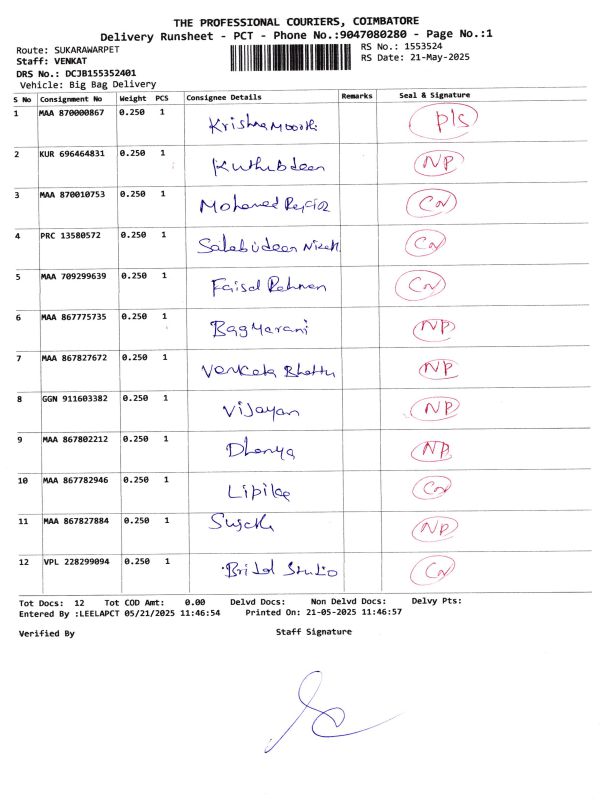 THE PROFESSIONAL COURIERS, COIMBATORE
Delivery Runsheet - PCT - Phone No.:9047080280 - Page No.:1
Route: SUKARAWARPET RS No.: 1553524
Staff: VENKAT RS Date: 21-May-2025
DRS No.: DCJB155352401
Vehicle: Big Bag Delivery
S No Consignment No Weight PCS Consignee Details Remarks Seal & Signature
1 MAA 870000867 0.250 1 Krishna Moorthi P/s
2 KUR 696464831 0.250 1 Kuthbdeen NP
3 MAA 870010753 0.250 1 Mohamed
4 PRC 13580572 0.250 1
5 MAA 709299639 0.250 1 Faisal Rahman
6 MAA 867775735 0.250 1 NP
7 MAA 867827672 0.250 1 Venkata Bhattu NP
8 GGN 911603382 0.250 1 Vijayan NP
9 MAA 867802212 0.250 1 Dhanya NP
10 MAA 867782946 0.250 1 Lipika
11 MAA 867827884 0.250 1 NP
12 VPL 228299094 0.250 1 Bridal Studio
Tot Docs: 12 Tot COD Amt: 0.00 Delvd Docs: Non Delvd Docs: Delvy Pts:
Entered By :LEELAPCT 05/21/2025 11:46:54 Printed On: 21-05-2025 11:46:57
Verified By Staff Signature